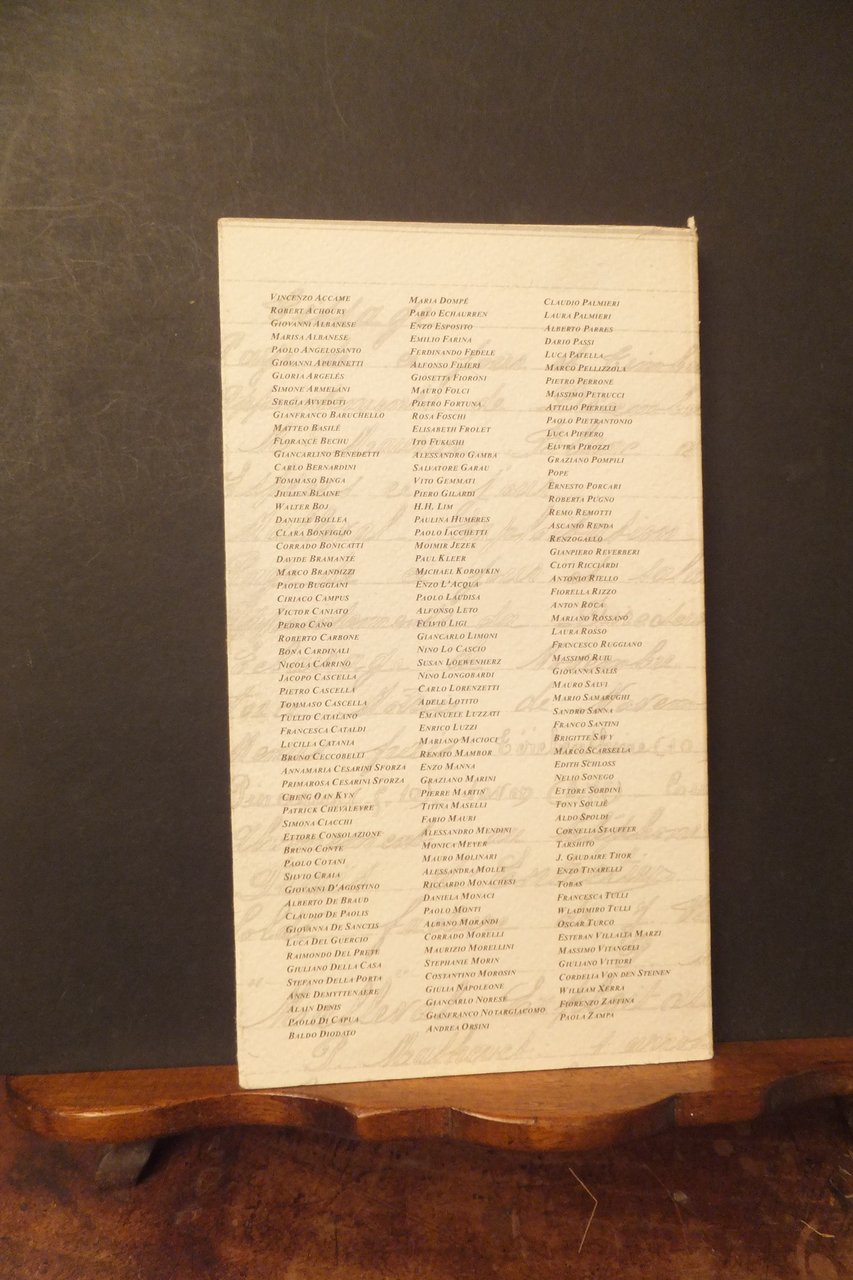 VINCENZO ACCAME
ROBERT ACHOURY
GIOVANNI ALBANESE
MARISA ALBANESE
PAOLO ANGELOSANTO
GIOVANNI APURINETTI
GLORIA ARGELÉS
SIMONE ARMELANI
SERGIA AVVEDUTI
GIANFRANCO BARUCHELLO
MATTEO BASILÉ
FLORANCE BECHU
GIANCARLINO BENEDETTI
CARLO BERNARDINI
TOMMASO BINGA
JIULIEN BLAINE
WALTER BOJ
DANIELE BOLLEA
CLARA BONFIGLIO
CORRADO BONICATTI
DAVIDE BRAMANTE
MARCO BRANDIZZI
PAOLO BUGGIANI
CIRIACO CAMPUS
VICTOR CANIATO
PEDRO CANO
ROBERTO CARBONE
BONA CARDINALI
NICOLA CARRINO
JACOPO CASCELLA
PIETRO CASCELLA
TOMMASO CASCELLA
TULLIO CATALANO
FRANCESCA CATALDI
LUCILLA CATANIA
BRUNO CECCOBELLI
ANNAMARIA CESARINI SFORZA
PRIMAROSA CESARINI SFORZA
CHENG OAN KYN
PATRICK CHEVALEYRE
SIMONA CIACCHI
ETTORE CONSOLAZIONE
BRUNO CONTE
PAOLO COTANI
SILVIO CRAIA
GIOVANNI D'AGOSTINO
ALBERTO DE BRAUD
CLAUDIO DE PAOLIS
GIOVANNA DE SANCTIS
LUCA DEL GUERCIO
RAIMONDO DEL PRETE
GIULIANO DELLA CASA
STEFANO DELLA PORTA
ANNE DEMYTTENAERE
ALAIN DENIS
PAOLO DI CAPUA
BALDO DIODATO
MARIA DOMPÉ
PABLO ECHAURREN
ENZO ESPOSITO
EMILIO FARINA
FERDINANDO FEDELE
ALFONSO FILIERI
GIOSETTA FIORONI
MAURO FOLCI
PIETRO FORTUNA
ROSA FOSCHI
ELISABETH FROLET
ITO FUKUSHI
ALESSANDRO GAMBA
SALVATORE GARAU
VITO GEMMATI
PIERO GILARDI
H.H. LIM
PAULINA HUMERES
PAOLO IACCHETTI
MOIMIR JEZEK
PAUL KLEER
MICHAEL KOROVKIN
ENZO L'ACQUA
PAOLO LAUDISA
ALFONSO LETO
FULVIO LIGI
GIANCARLO LIMONI
NINO LO CASCIO
SUSAN LOEWENHERZ
NINO LONGOBARDI
CARLO LORENZETTI
ADELE LOTITO
EMANUELE LUZZATI
ENRICO LUZZI
MARIANO MACIOCI
RENATO MAMBOR
ENZO MANNA
GRAZIANO MARINI
PIERRE MARTIN
TITINA MASELLI
FABIO MAURI
ALESSANDRO MENDINI
MONICA MEYER
MAURO MOLINARI
ALESSANDRA MOLLE
RICCARDO MONACHESI
DANIELA MONACI
PAOLO MONTI
ALBANO MORANDI
CORRADO MORELLI
MAURIZIO MORELLINI
STEPHANIE MORIN
COSTANTINO MOROSIN
GIULIA NAPOLEONE
GIANCARLO NORESE
GIANFRANCO NOTARGIACOMO
ANDREA ORSINI
CLAUDIO PALMIERI
LAURA PALMIERI
ALBERTO PARRES
DARIO PASSI
LUCA PATELLA
MARCO PELLIZZOLA
PIETRO PERRONE
MASSIMO PETRUCCI
ATTILIO PIERELLI
PAOLO PIETRANTONIO
LUCA PIFFERO
ELVIRA PIROZZI
GRAZIANO POMPILI
POPE
ERNESTO PORCARI
ROBERTA PUGNO
REMO REMOTTI
ASCANIO RENDA
RENZOGALLO
GIANPIERO REVERBERI
CLOTI RICCIARDI
ANTONIO RIELLO
FIORELLA RIZZO
ANTON ROCA
MARIANO ROSSANO
LAURA ROSSO
FRANCESCO RUGGIANO
MASSIMO RUIU
GIOVANNA SALIS
MAURO SALVI
MARIO SAMARUGHI
SANDRO SANNA
FRANCO SANTINI
BRIGITTE SAVY
MARCO SCARSELLA
EDITH SCHLOSS
NELIO SONEGO
ETTORE SORDINI
TONY SOULIÈ
ALDO SPOLDI
CORNELIA STAUFFER
TARSHITO
J. GAUDAIRE THOR
ENZO TINARELLI
TOBAS
FRANCESCA TULLI
WLADIMIRO TULLI
OSCAR TURCO
ESTEBAN VILLALTA MARZI
MASSIMO VITANGELI
GIULIANO VITTORI
CORDELIA VON DEN STEINEN
WILLIAM XERRA
FIORENZO ZAFFINA
PAOLA ZAMPA